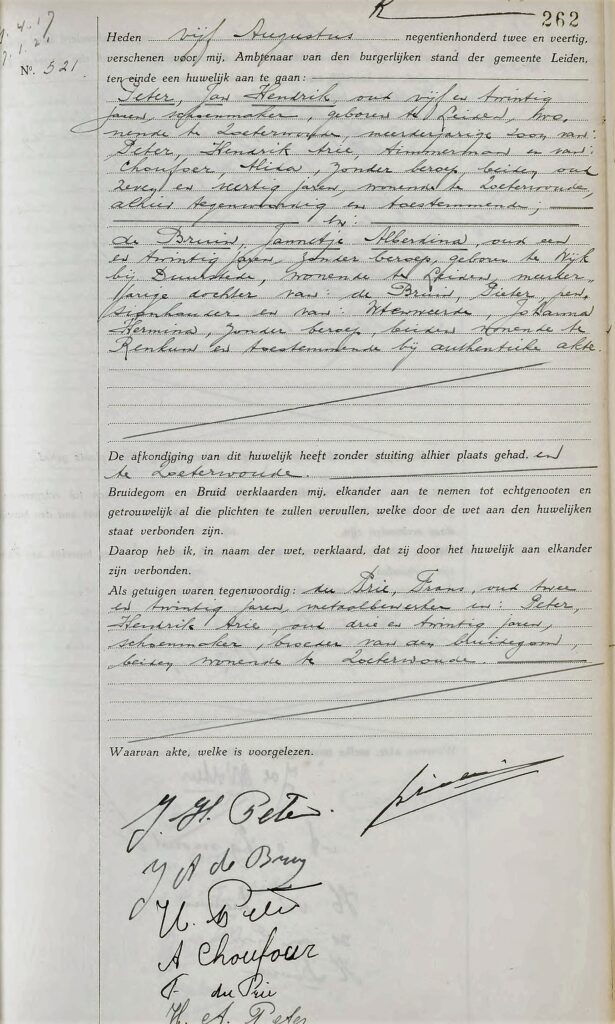 K
262
4. 17
7. 1. 2
No. 521.
Heden vijf Augustus negentienhonderd twee en veertig,
verschenen voor mij, Ambtenaar van den burgerlijken stand der gemeente Leiden,
ten einde een huwelijk aan te gaan:
Peter, Jan Hendrik, oud vijf en twintig
jaren, schoenmaker, geboren te Leiden, wo-
nende te Zoeterwoude, meerderjarige zoon van:
Peter, Hendrik Arie, timmerman en van:
Choufoer, Alida, zonder beroep, beiden oud
zeven en veertig jaren, wonende te Zoeterwoude,
alhier tegenwoordig en toestemmende;
en:
de Bruin, Jannetje Alberdina, oud een
en twintig jaren, zonder beroep, geboren te Wijk
bij Duurstede, wonende te Leiden, meerder-
jarige dochter van: de Bruin, Pieter, pen-
sionhouder en van: Uitenweerde, Johanna
Hermina, zonder beroep, beiden wonende te
Renkum en toestemmende bij authentieke akte.
De afkondiging van dit huwelijk heeft zonder stuiting alhier plaats gehad. en
te Zoeterwoude.
Bruidegom en Bruid verklaarden mij, elkander aan te nemen tot echtgenooten en
getrouwelijk al die plichten te zullen vervullen, welke door de wet aan den huwelijken
staat verbonden zijn.
Daarop heb ik, in naam der wet, verklaard, dat zij door het huwelijk aan elkander
zijn verbonden.
Als getuigen waren tegenwoordig: du Prie, Frans, oud twee
en twintig jaren, metaalbewerker en: Peter,
Hendrik Arie, oud drie en twintig jaren,
schoenmaker, broeder van den bruidegom,
beiden wonende te Zoeterwoude.
Waarvan akte, welke is voorgelezen.
J. H. Peter.
J A de Bruy
H. Peter
A Choufour
F. du Prie
H. A. Peter